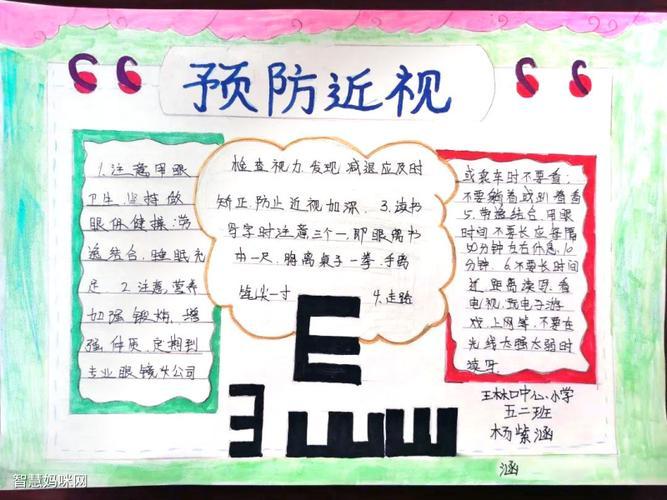 预防近视
1.注意用眼
卫生,坚持做
眼保健操,劳
逸结合,睡眠充
足 2.注意营养
加强锻炼,增
强体质,定期到
专业眼镜公司
检查视力,发现减退应及时
矫正,防止近视加深. 3.读书
写字时注意三个一,即眼离书
本一尺,胸离桌子一拳,手离
笔尖一寸 4.走路
或乘车时不要看;
不要躺着或趴着看
5.劳逸结合,用眼
时间不要长应每隔
50分钟左右休息10
分钟. 6.不要长时间
近距离读写.看
电视,玩电子游
戏,上网等,不要在
光线太强太弱时
读写
E
王林口中心小学
五二班
杨紫涵
涵
智慧妈咪网